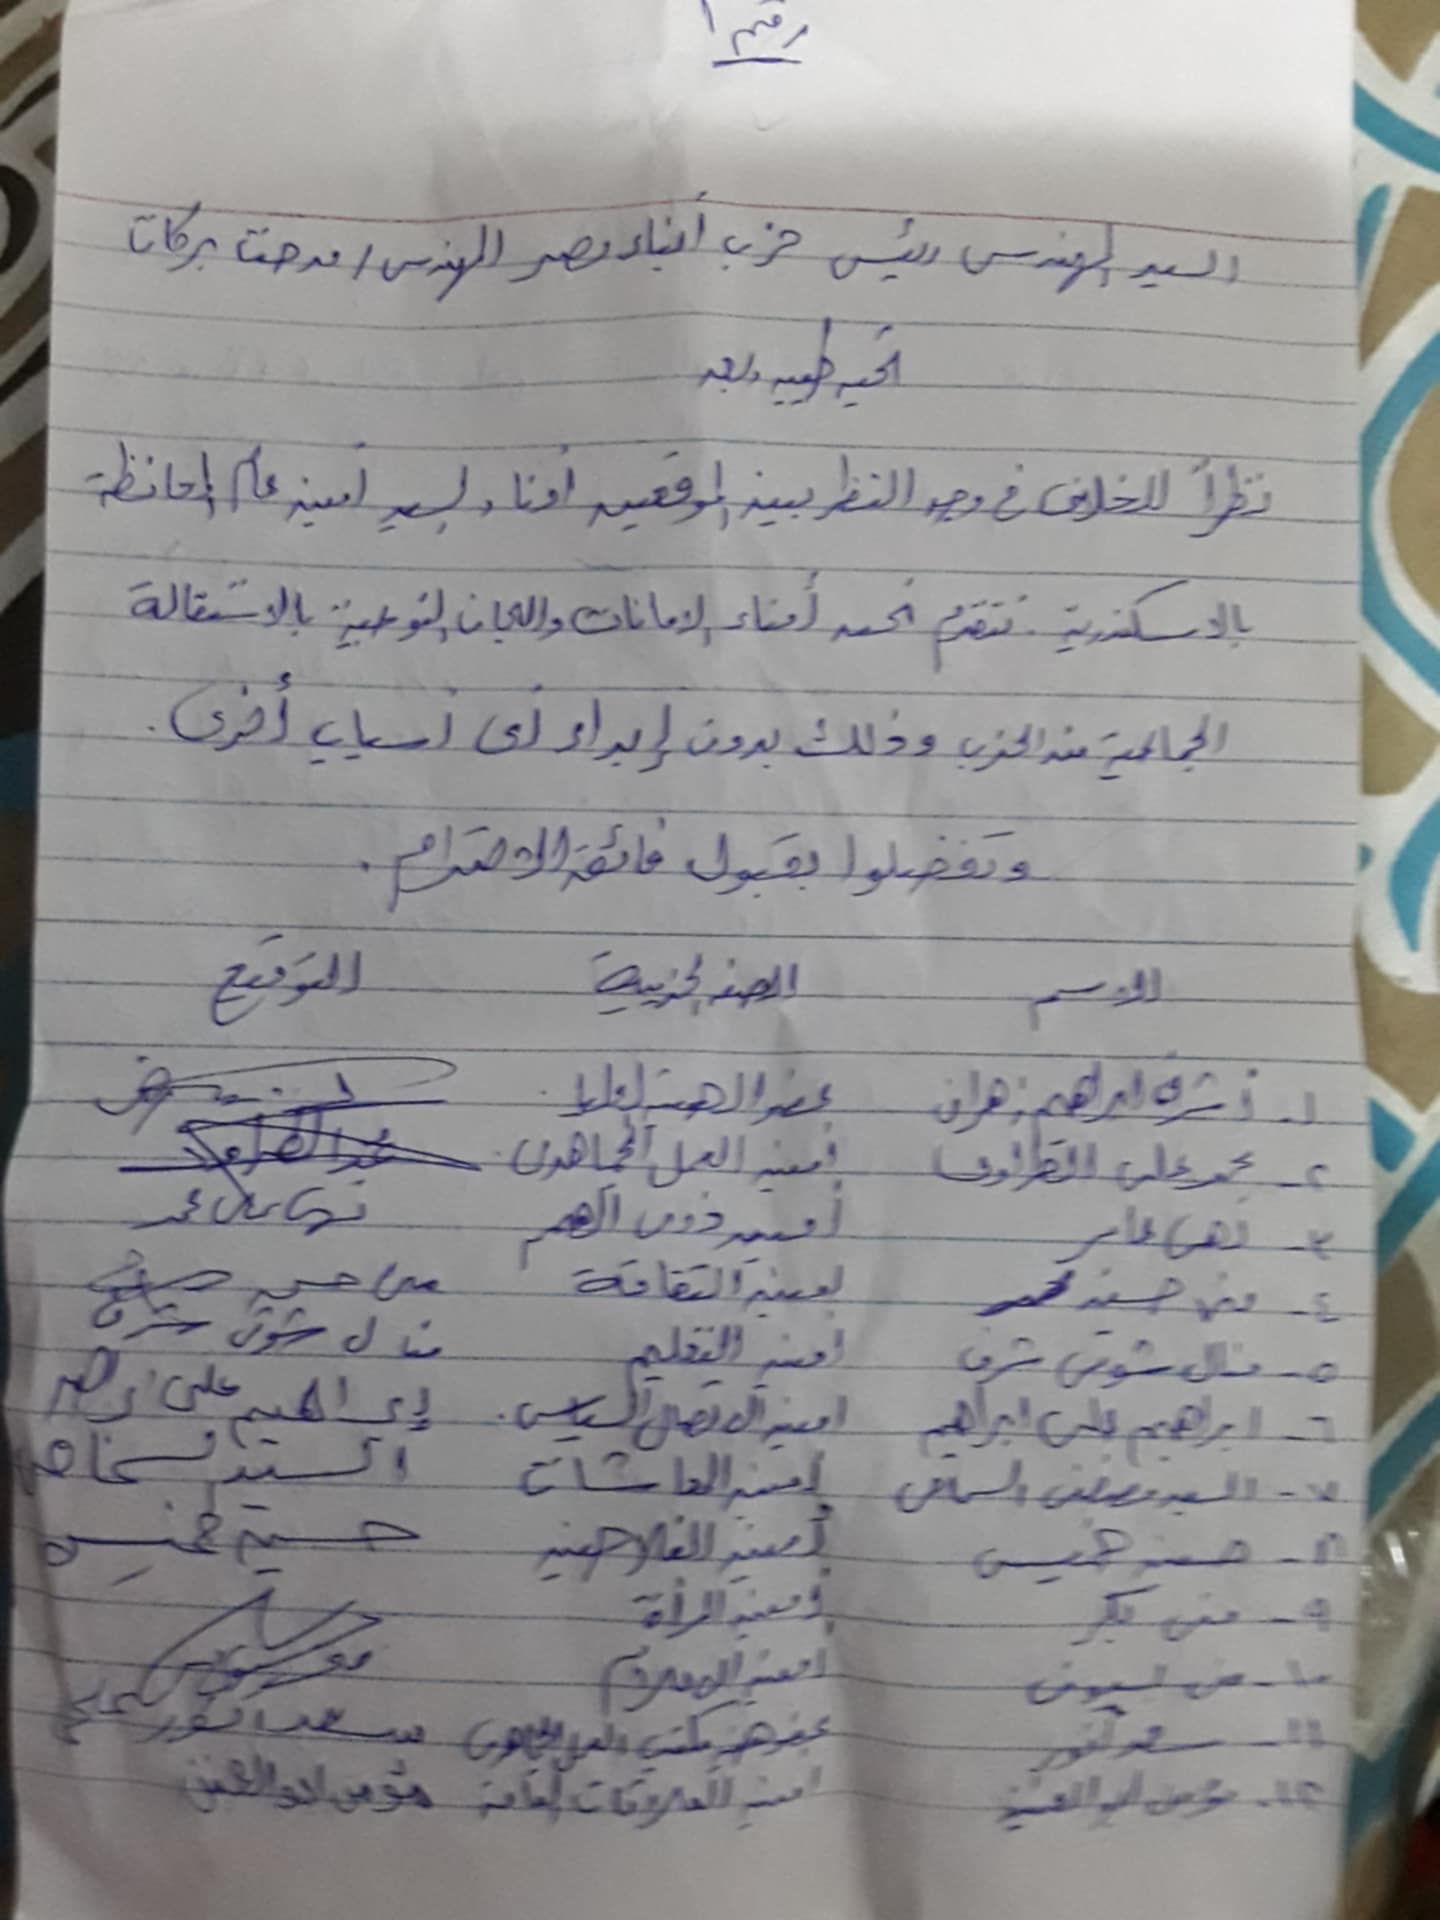 رقم ١
السيد المهندس رئيس حزب أبناء مصر المهندس / مدحت بركات
تحيه طيبه وبعد
نظراً للخلاف في وجه النظر بين الموقعين أدناه والسيد أمين عام المحافظة
بالاسكندرية . نتقدم نحن أمناء الامانات واللجان النوعية بالاستقالة
الجماعية من الحزب وذلك بدون إبداء أى أسباب أخرى .
وتفضلوا بقبول فائق الاحترام .
الاسم الصفه الحزبية التوقيع
١- أشرف ابراهيم زهران عضو الهيئه العليا
٢- محمد على الطراوى أمين العمل الجماهيرى .
٣- نهى عامر أمينه ذوى الهمم نهى عامر محمد
٤- منى حسين محمد أمينة الثقافة منى حسين
٥- منال شوقى شرف امينه التعليم منال شوقى شرف
٦- ابراهيم على ابراهيم امين الاتصال السياسى . إبراهيم على ابراهيم
٧- السيد مصطفى أمين المعاشات السيد
٨- حسن خميس أمين الفلاحين حسن خميس
٩- منى بكر أمينة المرأة
١٠- بسيونى أمين الاعلام
١١- سعد انور عضو هيئة مكتب العمل الجماهيرى سعد انور
١٢- مؤمن ابو العنين امين العلاقات العامة مؤمن ابو العنين